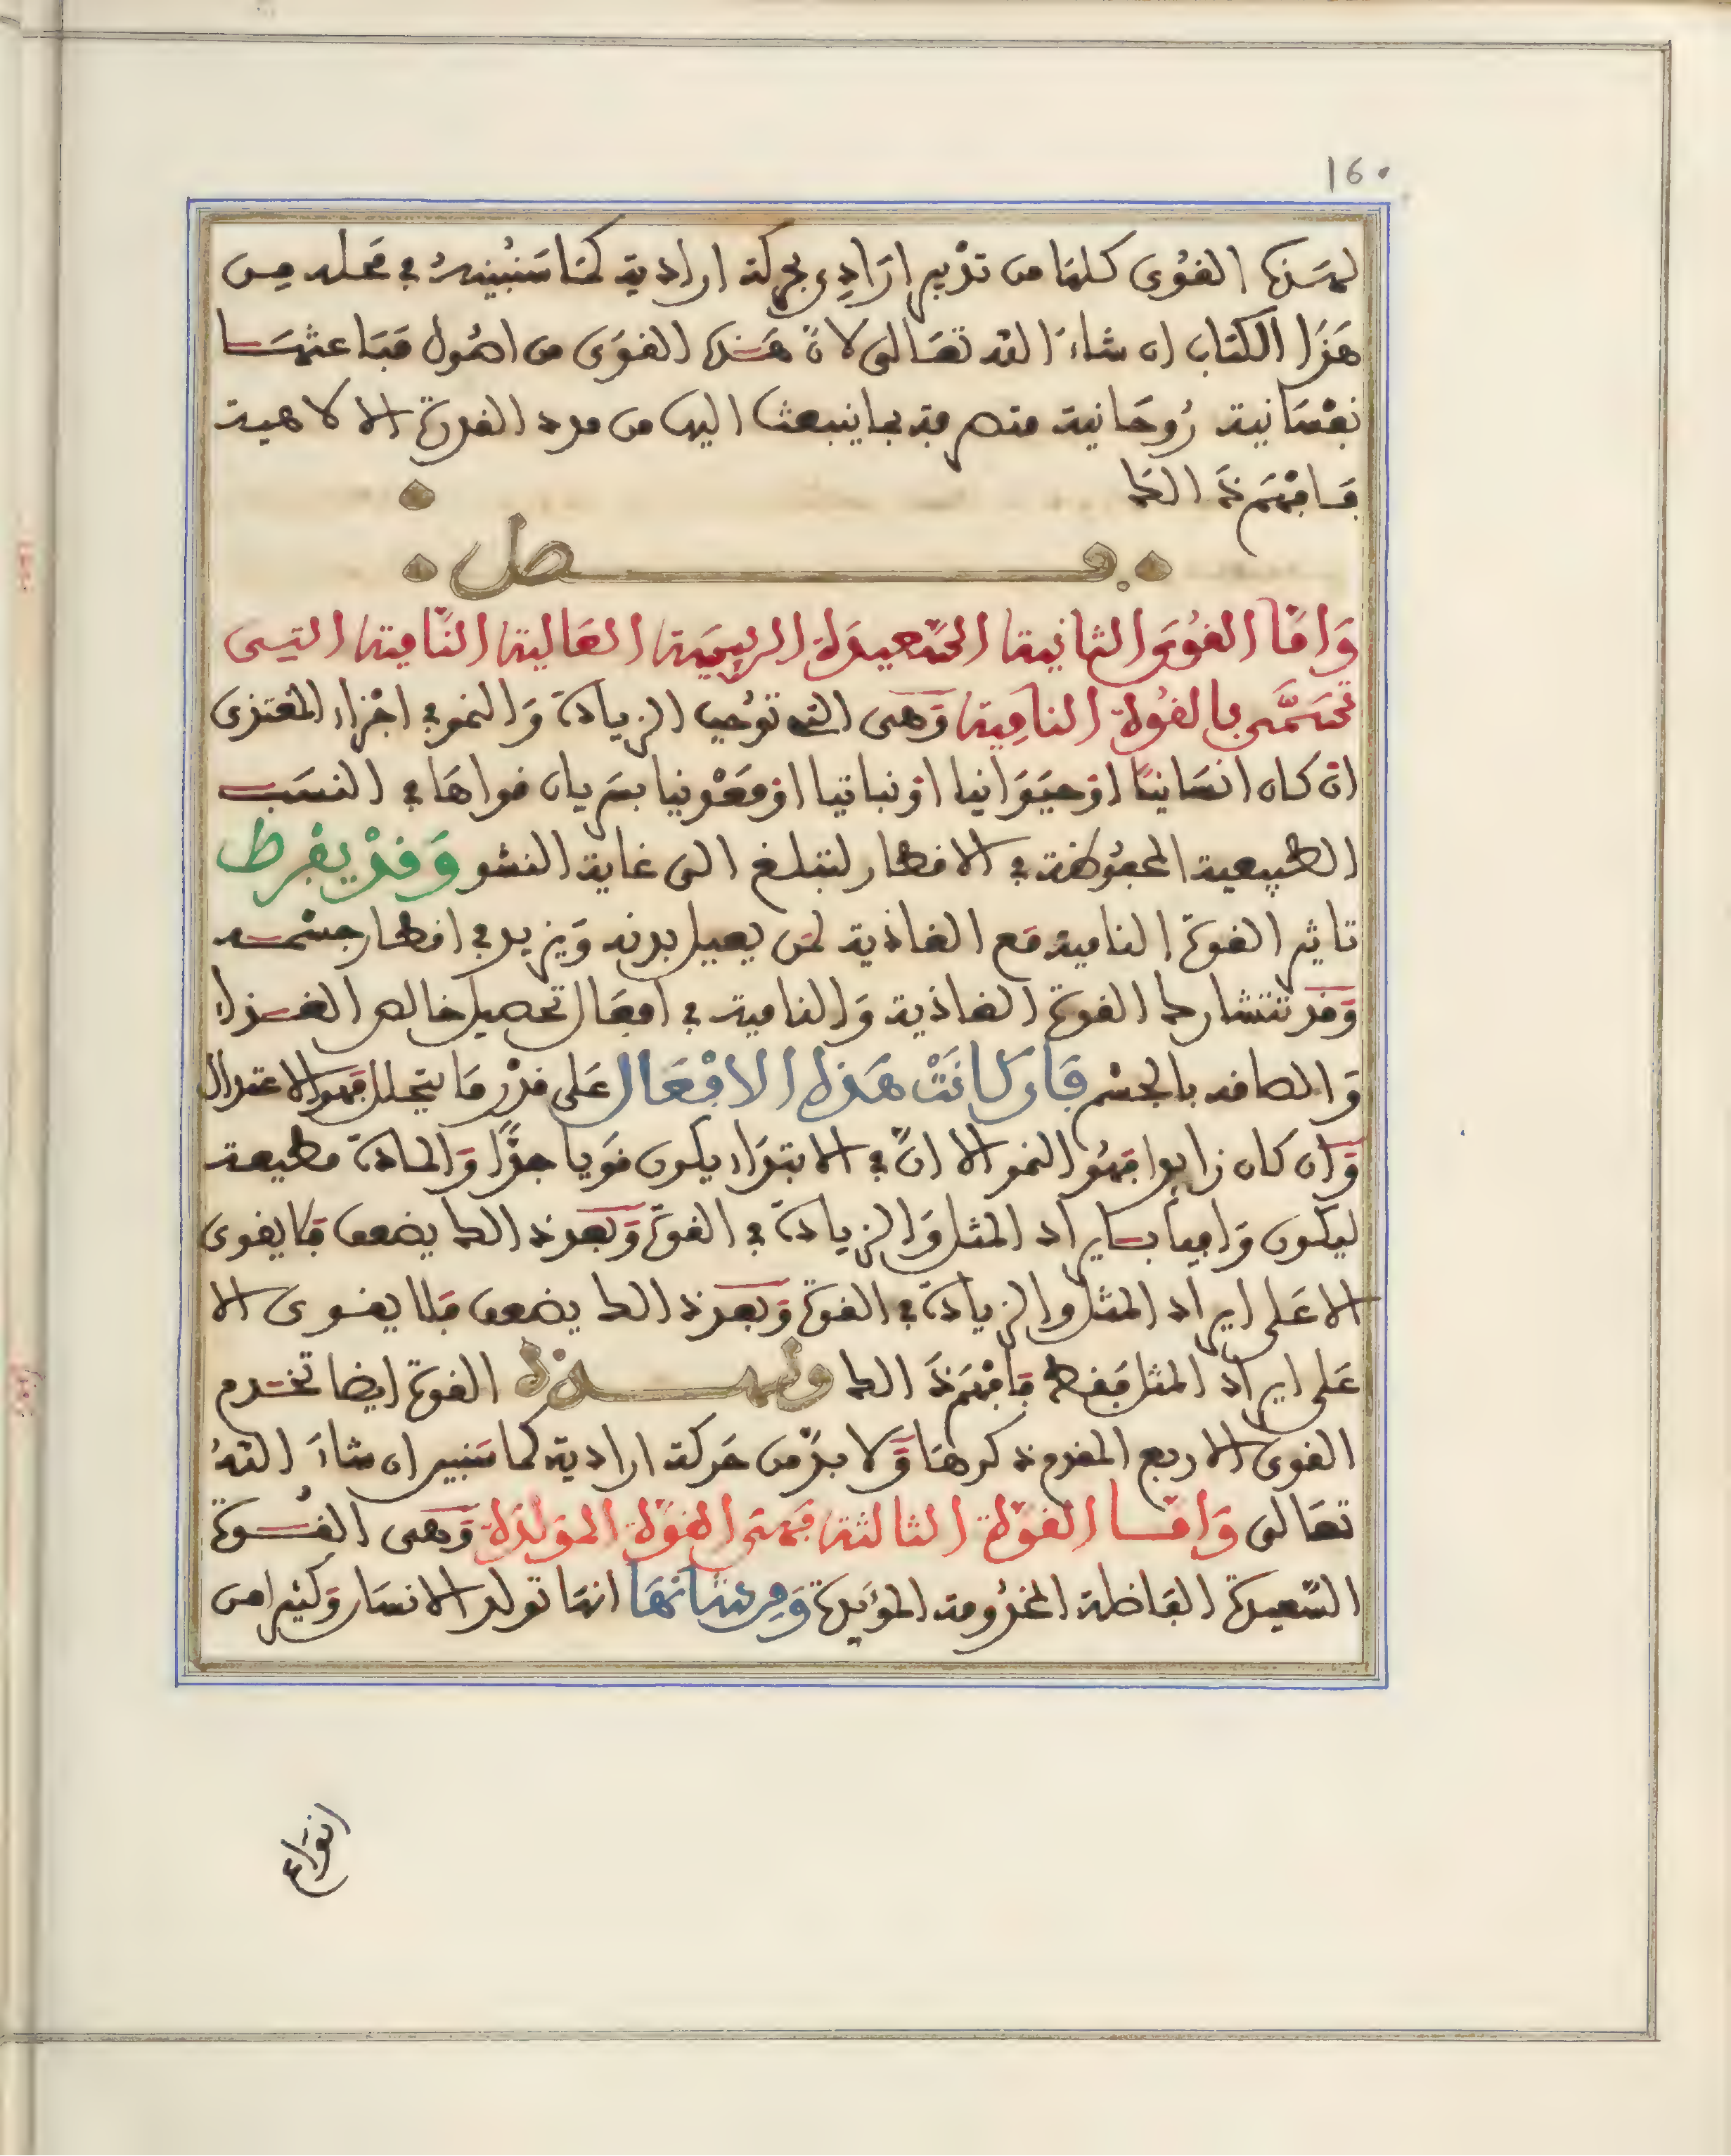 160
لهذه القوى كلها من تدبير إرَادِي بحركة ارادية كما سَنُبينهُ في محَله مِن
هَذا الكتاب ان شاءَ الله تعَالى لانّ هَذه القوَى من اصُول مبَاعثهَا
نفسَانية رُوحَانية متصرفة بما ينبعث اليها من مدد القدرة الالاهية
فافهَم ذَلك
فصل
وَامّا القُوَّة الثانية السّعيدَة الرييسَة العَالية النّامية التي
تُسَمَّى بالقُوة النامِية وَهي التي توُجب الزيادة وَالنمو في اجْزاء المغتذى
ان كان انسَانيّا اوْ حيَوَانيا اوْ نباتيا اوْ مَعْدنيا بسَريان قواهَا في النسَب
الطبيعية المحفوُظة في الاقطار لتبلغ الى غاية النشو وَقدْ يفرط
تاثير القوة النامية مَع الغاذية لمَن يعبل بدنه وَيزيد في اقطار جسْمه
وَقد تتشارك القوة الغاذية وَالنامية في افعَال تحصيل خالص الغذاء
وَالصاقه بالجسْم فَان كانَتْ هَذه الافْعَال على قدْر مَا يتحلل فهو الاعتدال
وَان كان زايدا فهُو النمو الا انّ في الابتدَاء يكون قوَيا جدًّا وَالمادة مطيعة
ليكون وَافيا بايراد المثل وَالزيادة في القوة وَبعد ذلك يضعف فلا يقوى
الا عَلى ايراد المثل والزيادة في القوة وَبعد ذلك يضعف فلا يقوى الا
عَلى ايراد المثل فقط فافْهَم ذَلك وهذه القوة ايضا تخدم
القوى الاربع المقدم ذكرهَا وَلا بدّ من حَركة ارادية كما سَنبين ان شاءَ اللهُ
تعَالى وَامّا القوّة الثالثة فهي القوّة المولدَة وَهي القُوة
السّعيدة الفَاضلة المخدُومة المؤَيدة وَمِن شانهَا انهَا تولد الانسَان وَكثيرا من
انوَاع